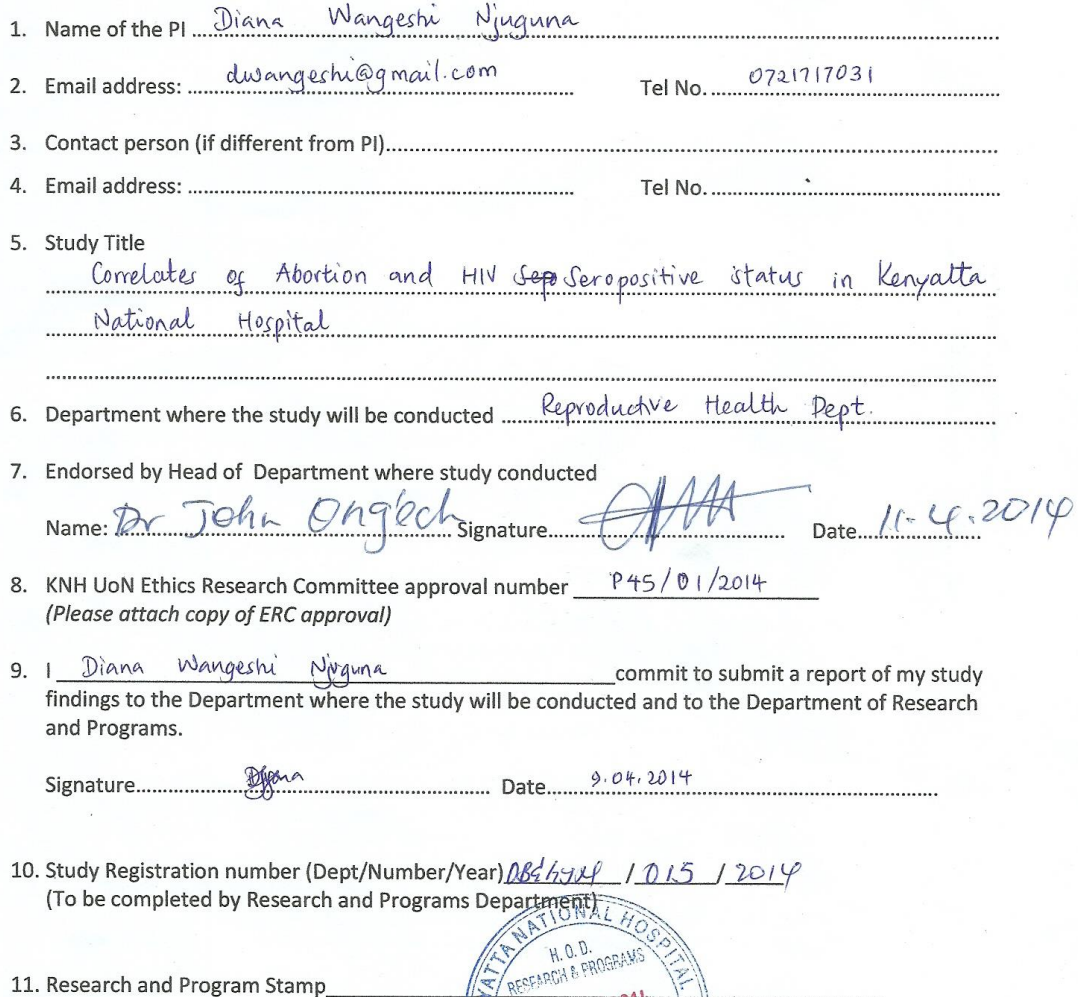 1. Name of the PI ... Diana Wangeshi Njuguna
2. Email address: ... dwangeshi@gmail.com Tel No. ... 0721717031
3. Contact person (if different from PI)...
4. Email address: ... Tel No. ...
5. Study Title
Correlates of Abortion and HIV Sep Seropositive status in Kenyatta
National Hospital
6. Department where the study will be conducted ... Reproductive Health Dept.
7. Endorsed by Head of Department where study conducted
Name: Dr John Ong'ech Signature... Date... 11-4.2014
8. KNH UoN Ethics Research Committee approval number P45/01/2014
(Please attach copy of ERC approval)
9. I Diana Wangeshi Njuguna commit to submit a report of my study
findings to the Department where the study will be conducted and to the Department of Research
and Programs.
Signature... Date... 9.04.2014
10. Study Registration number (Dept/Number/Year) / 015 / 2014
(To be completed by Research and Programs Department)
11. Research and Program Stamp
YATTA NATIONAL HOSPITAL
H.O.D.
RESEARCH & PROGRAMS